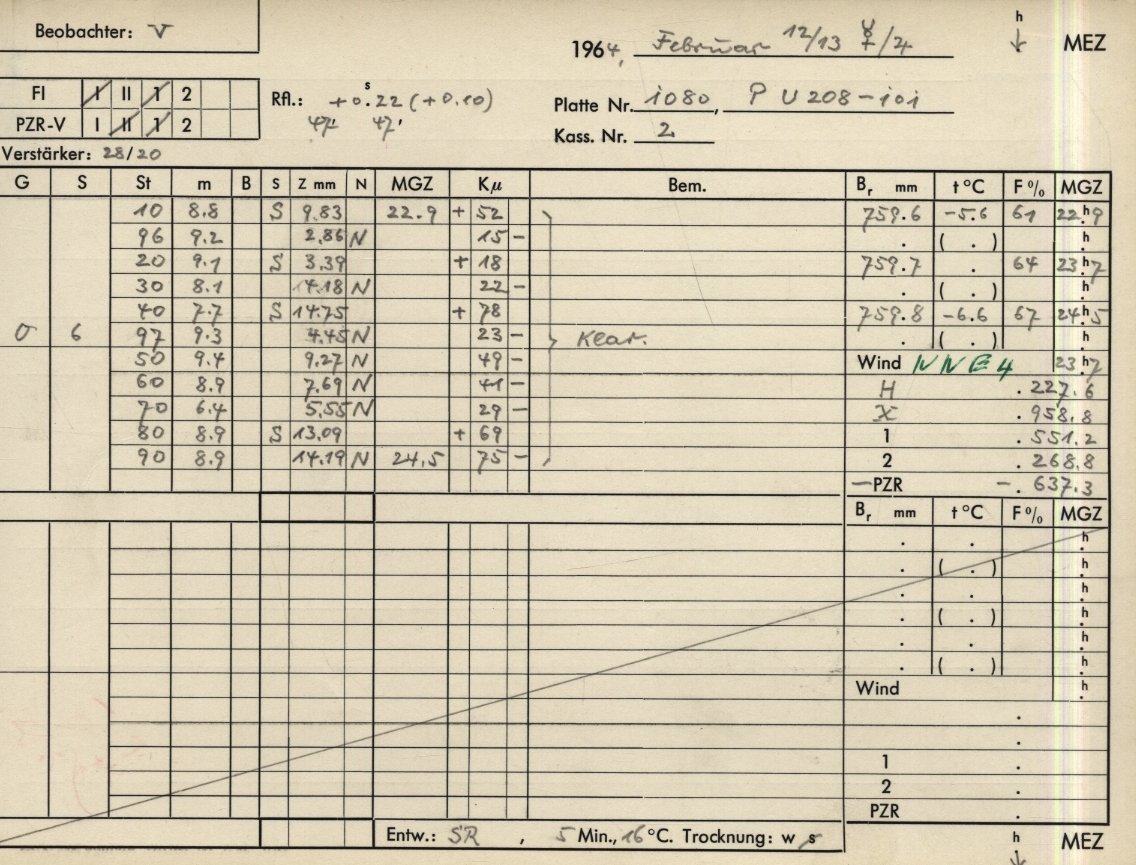 Beobachter: V
1964, Februar 12/13 ☿/♃ h MEZ
FI I II 1 2
PZR-V I II 1 2
Rfl.: +0.22 s (+0.10)
47' 47'
Platte Nr. 1080, P U 208-101
Kass. Nr. 2
Verstärker: 28/20
G S St m B S Z mm N MGZ Kµ Bem. Br mm t °C F % MGZ
10 8.8 S 9.83 22.9 + 52 759.6 -5.6 61 22.h9
96 9.2 2.86 N 15 - . ( . ) h
20 9.1 S 3.39 + 18 759.7 . 64 23.h7
30 8.1 4.18 N 22 - . ( . ) h
40 7.7 S 14.75 + 78 759.8 -6.6 67 24.h5
0 6 97 9.3 4.45 N 23 - Klar. . ( . ) h
50 9.4 9.27 N 49 - Wind NNE 4 23.h7
60 8.9 7.69 N 41 - H . 227.6
70 6.4 5.55 N 29 - . 958.8
80 8.9 S 13.09 + 69 1 . 551.2
90 8.9 14.19 N 24.5 75 - 2 . 268.8
-PZR -. 637.3
Br mm t °C F % MGZ
. . h
. ( . ) h
. . h
. ( . ) h
. . h
. ( . ) h
Wind h
.
.
1 .
2 .
PZR .
Entw.: SR , 5 Min., 16 °C. Trocknung: w s h MEZ